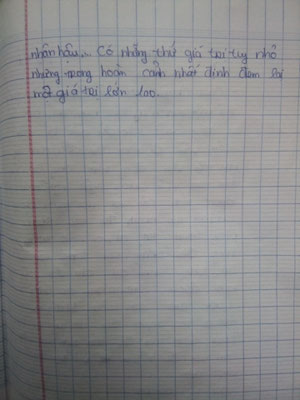 nhân hậu... Có những thứ giá trị tuy nhỏ
nhưng trong hoàn cảnh nhất định đem lại
một giá trị lớn lao.